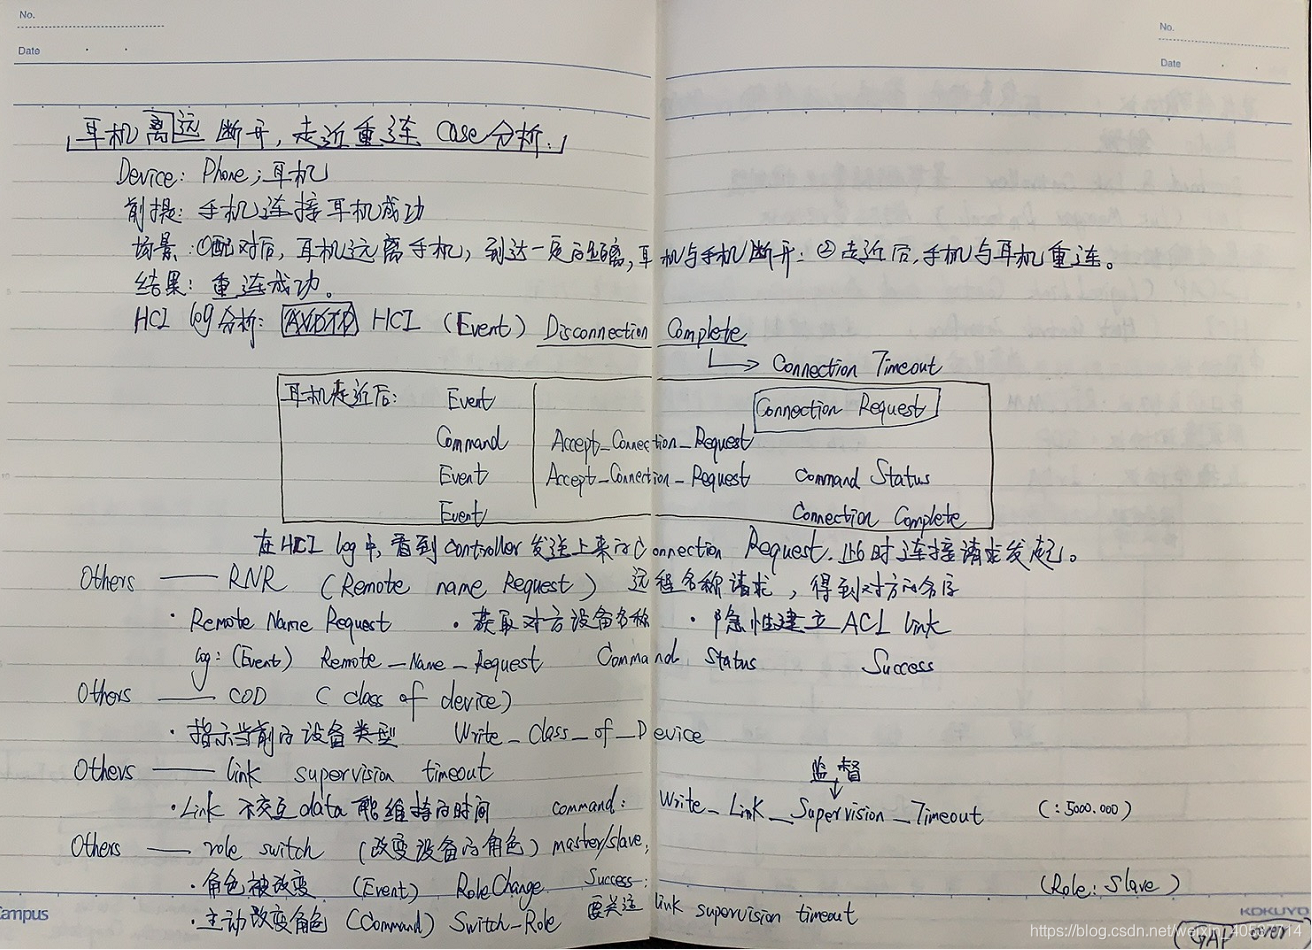 No.
Date
No.
Date
耳机离远断开,走近重连 Case分析:
Device: Phone;耳机
前提: 手机连接耳机成功
场景:①配对后,耳机远离手机,到达一定的距离,耳机与手机断开;②走近后,手机与耳机重连。
结果: 重连成功。
HCI log分析: HCI (Event) Disconnection Complete
Connection Timeout
耳机走近后: Event Connection Request
Command Accept_Connection_Request
Event Accept_Connection_Request Command Status
Event Connection Complete
在HCI log中,看到controller发送上来的Connection Request.此时连接请求发起。
Others —— RNR (Remote name Request) 远程名称请求,得到对方的名字
· Remote Name Request · 获取对方设备名称 · 隐性建立ACL link
log: (Event) Remote_Name_Request Command Status Success
Others —— COD (class of device)
· 指示当前的设备类型 Write_Class_of_Device
Others —— link supervision timeout
监督
· Link 不交互data能维持的时间 command: Write_Link_Supervision_Timeout (:5000.000)
Others —— role switch (改变设备的角色) master/slave,
· 角色被改变 (Event) Role Change Success: (Role: Slave)
· 主动改变角色 (Command) Switch_Role 要关注 link supervision timeout
Campus
KOKUYO
(GAP over)